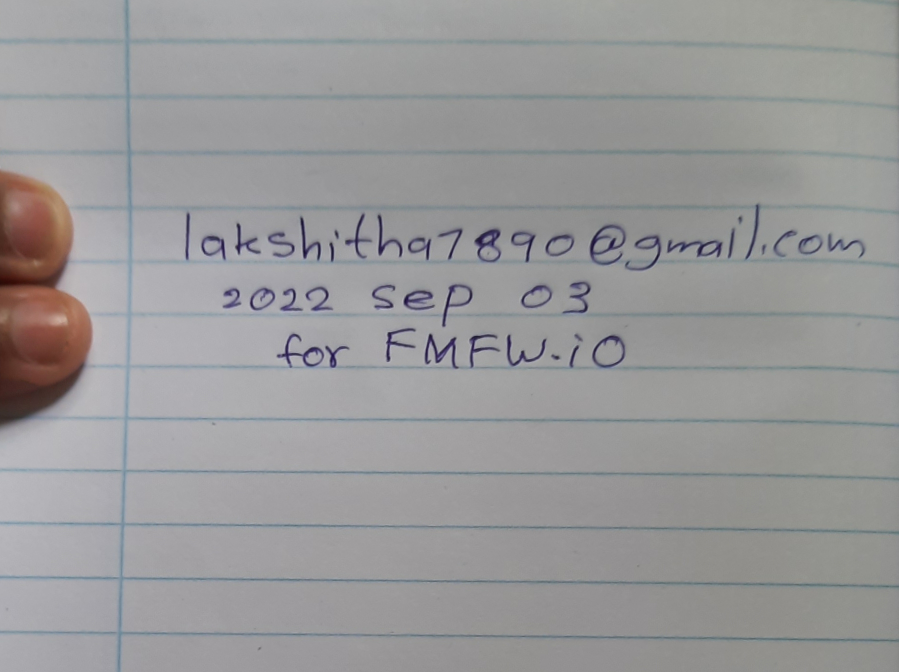 lakshitha7890@gmail.com
2022 sep 03
for FMFW.iO